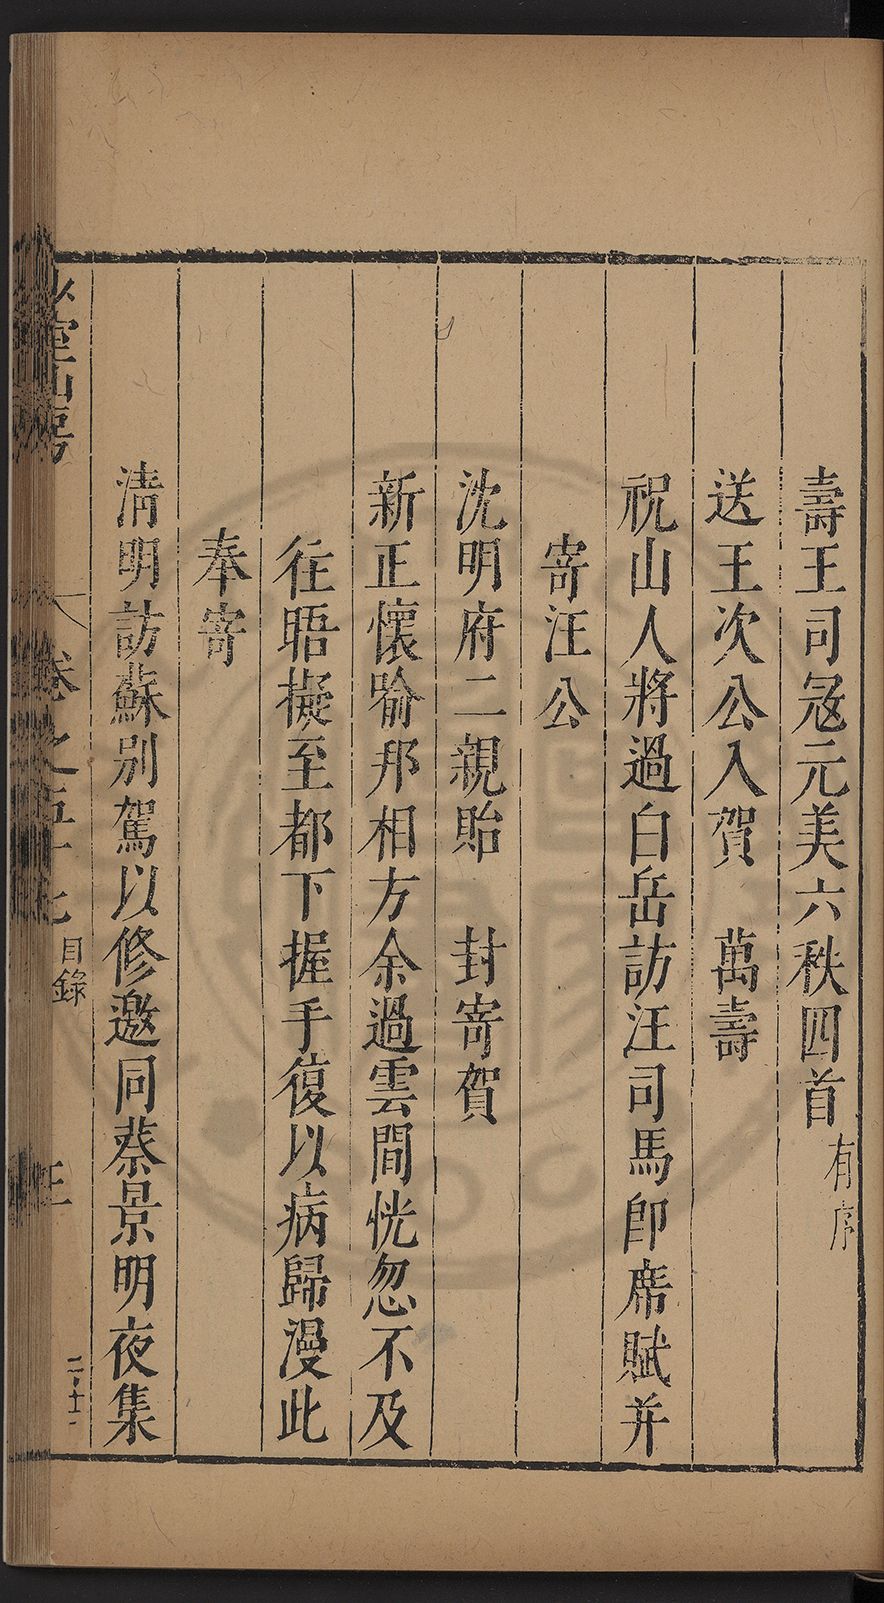 壽王司冦元美六秩四首有序
送王次公入賀 萬壽
祝山人將過白岳訪汪司馬卽席賦并
寄汪公
沈明府二親貽 封寄賀
新正懷喻邦相方余過雲間恍忽不及
徃晤擬至都下握手復以病歸漫此
奉寄
淸明訪蘇別駕以修邀同蔡景明夜集
少室山房
卷之五十七
目錄